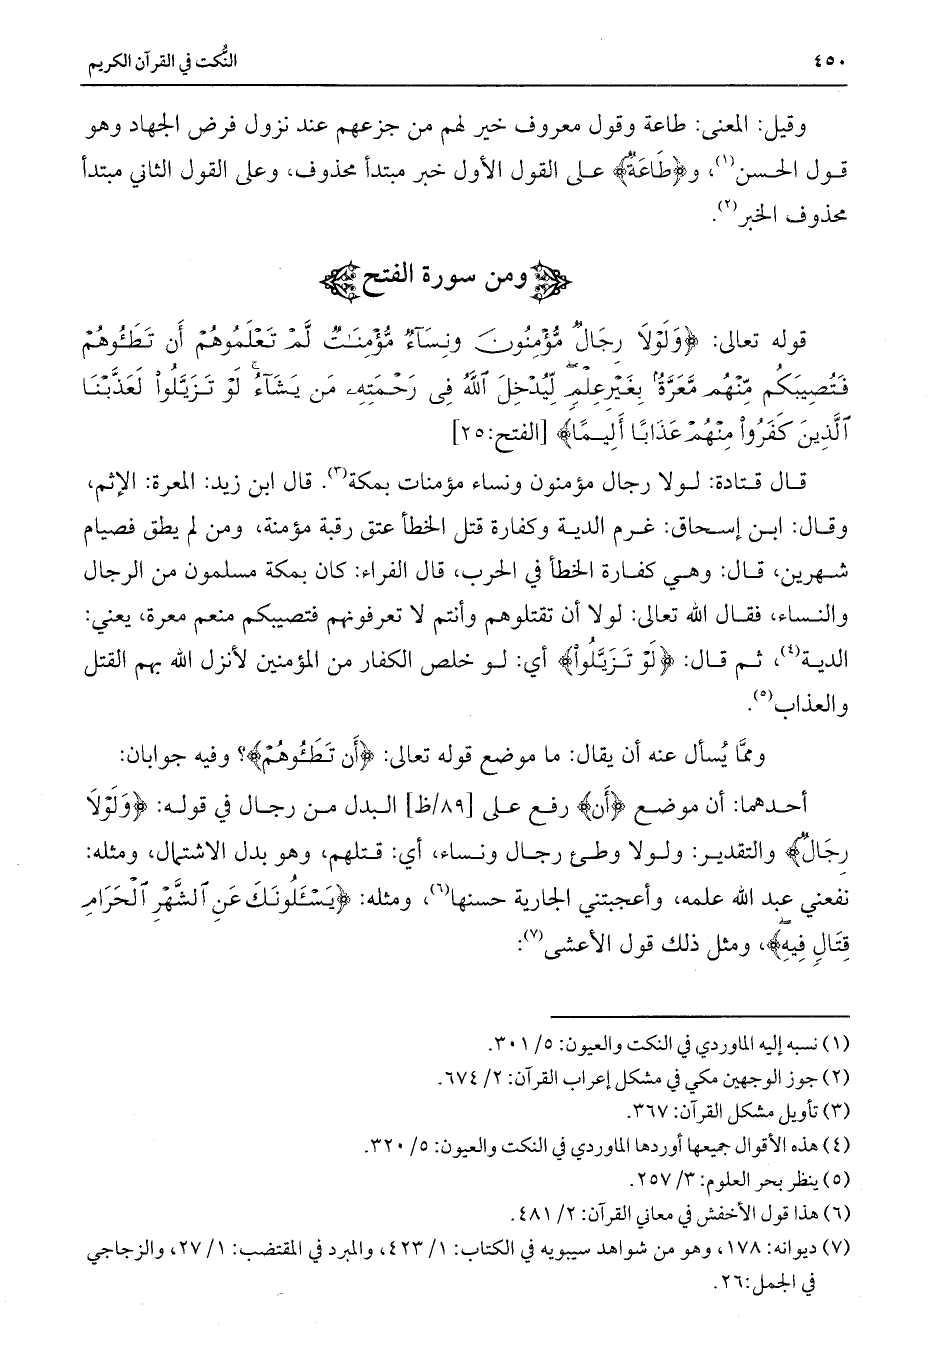 ٤٥٠ النُّكت في القرآن الكريم
وقيل: المعنى: طاعة وقول معروف خير لهم من جزعهم عند نزول فرض الجهاد وهو
قول الحسن(١)، و﴿طَاعَةٌ﴾ على القول الأول خبر مبتدأ محذوف، وعلى القول الثاني مبتدأ
محذوف الخبر(٢).
ومن سورة الفتح
قوله تعالى: ﴿وَلَوْلَا رِجَالٌ مُّؤْمِنُونَ وَنِسَآءٌ مُّؤْمِنَٰتٌ لَّمْ تَعْلَمُوهُمْ أَن تَطَـُٔوهُمْ
فَتُصِيبَكُم مِّنْهُم مَّعَرَّةٌۢ بِغَيْرِ عِلْمٍۖ لِّيُدْخِلَ ٱللَّهُ فِى رَحْمَتِهِۦ مَن يَشَآءُۚ لَوْ تَزَيَّلُوا۟ لَعَذَّبْنَا
ٱلَّذِينَ كَفَرُوا۟ مِنْهُمْ عَذَابًا أَلِيمًا﴾ [الفتح:٢٥]
قال قتادة: لولا رجال مؤمنون ونساء مؤمنات بمكة(٣). قال ابن زيد: المعرة: الإثم،
وقال: ابن إسحاق: غرم الدية وكفارة قتل الخطأ عتق رقبة مؤمنة، ومن لم يطق فصيام
شهرين، قال: وهي كفارة الخطأ في الحرب، قال الفراء: كان بمكة مسلمون من الرجال
والنساء، فقال الله تعالى: لولا أن تقتلوهم وأنتم لا تعرفونهم فتصيبكم منعم معرة، يعني:
الدية(٤)، ثم قال: ﴿لَوْ تَزَيَّلُوا۟﴾ أي: لو خلص الكفار من المؤمنين لأنزل الله بهم القتل
والعذاب(٥).
وممَّا يُسأل عنه أن يقال: ما موضع قوله تعالى: ﴿أَن تَطَـُٔوهُمْ﴾؟ وفيه جوابان:
أحدهما: أن موضع ﴿أَن﴾ رفع على [٨٩/ظ] البدل من رجال في قوله: ﴿وَلَوْلَا
رِجَالٌ﴾ والتقدير: ولولا وطئ رجال ونساء، أي: قتلهم، وهو بدل الاشتمال، ومثله:
نفعني عبد الله علمه، وأعجبتني الجارية حسنها(٦)، ومثله: ﴿يَسْـَٔلُونَكَ عَنِ ٱلشَّهْرِ ٱلْحَرَامِ
قِتَالٍ فِيهِۖ﴾، ومثل ذلك قول الأعشى(٧):
(١) نسبه إليه الماوردي في النكت والعيون: ٥/ ٣٠١.
(٢) جوز الوجهين مكي في مشكل إعراب القرآن: ٢/ ٦٧٤.
(٣) تأويل مشكل القرآن: ٣٦٧.
(٤) هذه الأقوال جميعها أوردها الماوردي في النكت والعيون: ٥/ ٣٢٠.
(٥) ينظر بحر العلوم: ٣/ ٢٥٧.
(٦) هذا قول الأخفش في معاني القرآن: ٢/ ٤٨١.
(٧) ديوانه: ١٧٨، وهو من شواهد سيبويه في الكتاب: ١/ ٤٢٣، والمبرد في المقتضب: ١/ ٢٧، والزجاجي
في الجمل:٢٦.